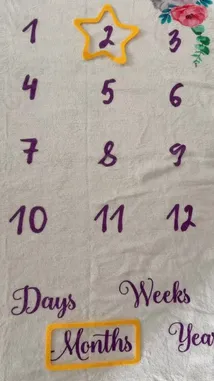 1 2 3
4 5 6
7 8 9
10 11 12
Days Weeks
Months